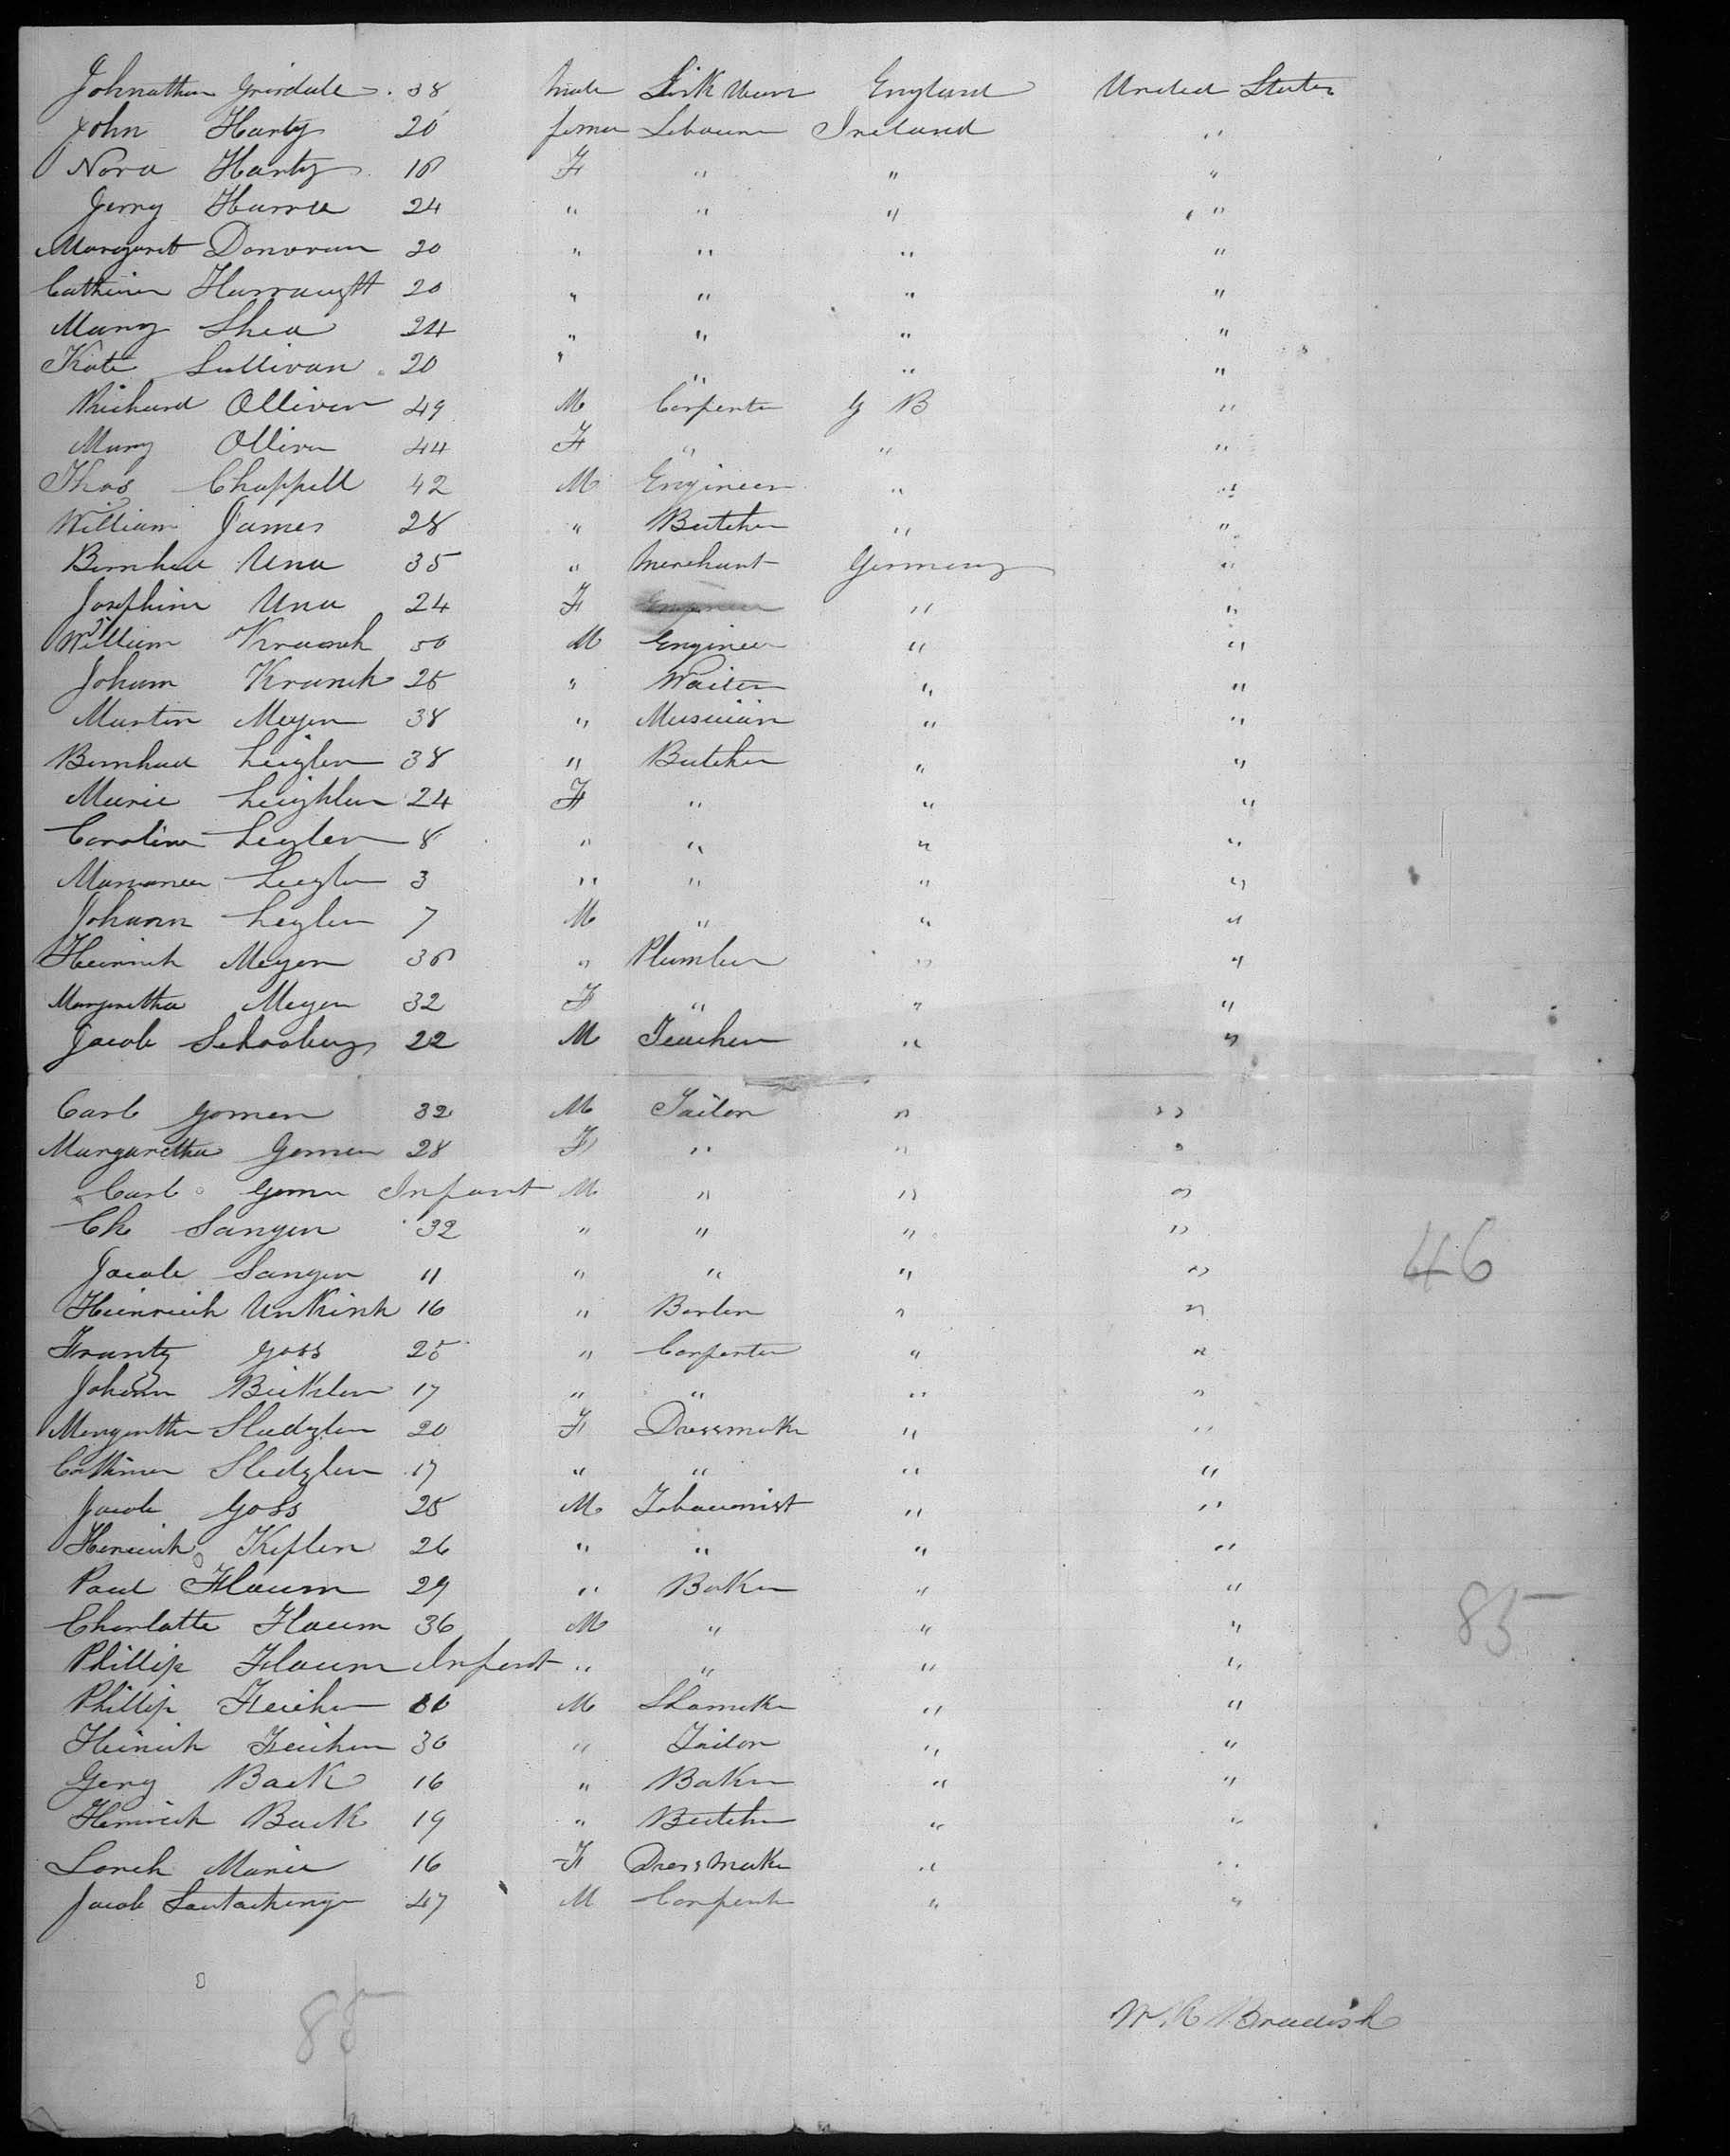 Johnathan Grisdale 38 male Silk Man England United States
John Harty 20 female Labourer Ireland "
Nora Harty 18 F " " "
Jerry Harra 24 " " " "
Margaret Donovan 20 " " " "
Catherine 20 " " " "
Mary Shea 24 " " " "
Kate Sullivan 20 " " " "
Richard Olliver 49 M Carpenter G B "
Mary Olliver 44 F " " "
Thos Chappell 42 M Engineer " "
William James 28 " Butcher " "
Bernhard Una 35 " Merchant Germany "
Josephine Una 24 F " "
William Kranch 50 M Engineer " "
Johann Kranch 25 " Waiter " "
Martin Meyer 38 " Musician " "
Bernhard Leigler 38 " Butcher " "
Marie Leighler 24 F " " "
Caroline Legler 8 " " " "
Leigler 3 " " " "
Johann Legler 7 M " " "
Heinrich Meyer 38 " Plumber " "
Margaretha Meyer 32 F " " "
Jacob 22 M Teacher " "
Carl Gomer 32 M Tailor " "
Margaretha Gomer 28 F " " "
Carl Gomer Infant M " " "
Ch Sanger 32 " " " "
46
Jacob Sanger 11 " " " "
Heinrich Unkink 16 " " "
Frantz Goss 25 " Carpenter " "
Johann 17 " " " "
Margaretha Sledzler 20 F Dressmaker " "
Catherine Sledzler 17 " " " "
Jacob Goss 25 M Tobaconist " "
Heinrich Kepler 26 " " " "
Paul Flaum 29 " Baker " "
85
Charlotte Flaum 36 M " " "
Phillip Flaum Infant " " " "
Phillip Feicher M Shomaker " "
Heinrich Feicher 30 " Tailor " "
Gery Back 16 " Baker " "
Heinrich Back 19 " Butcher " "
Lorch Marie 16 F Dressmaker " "
Jacob 47 M Carpenter " "
85
W. R Bradish